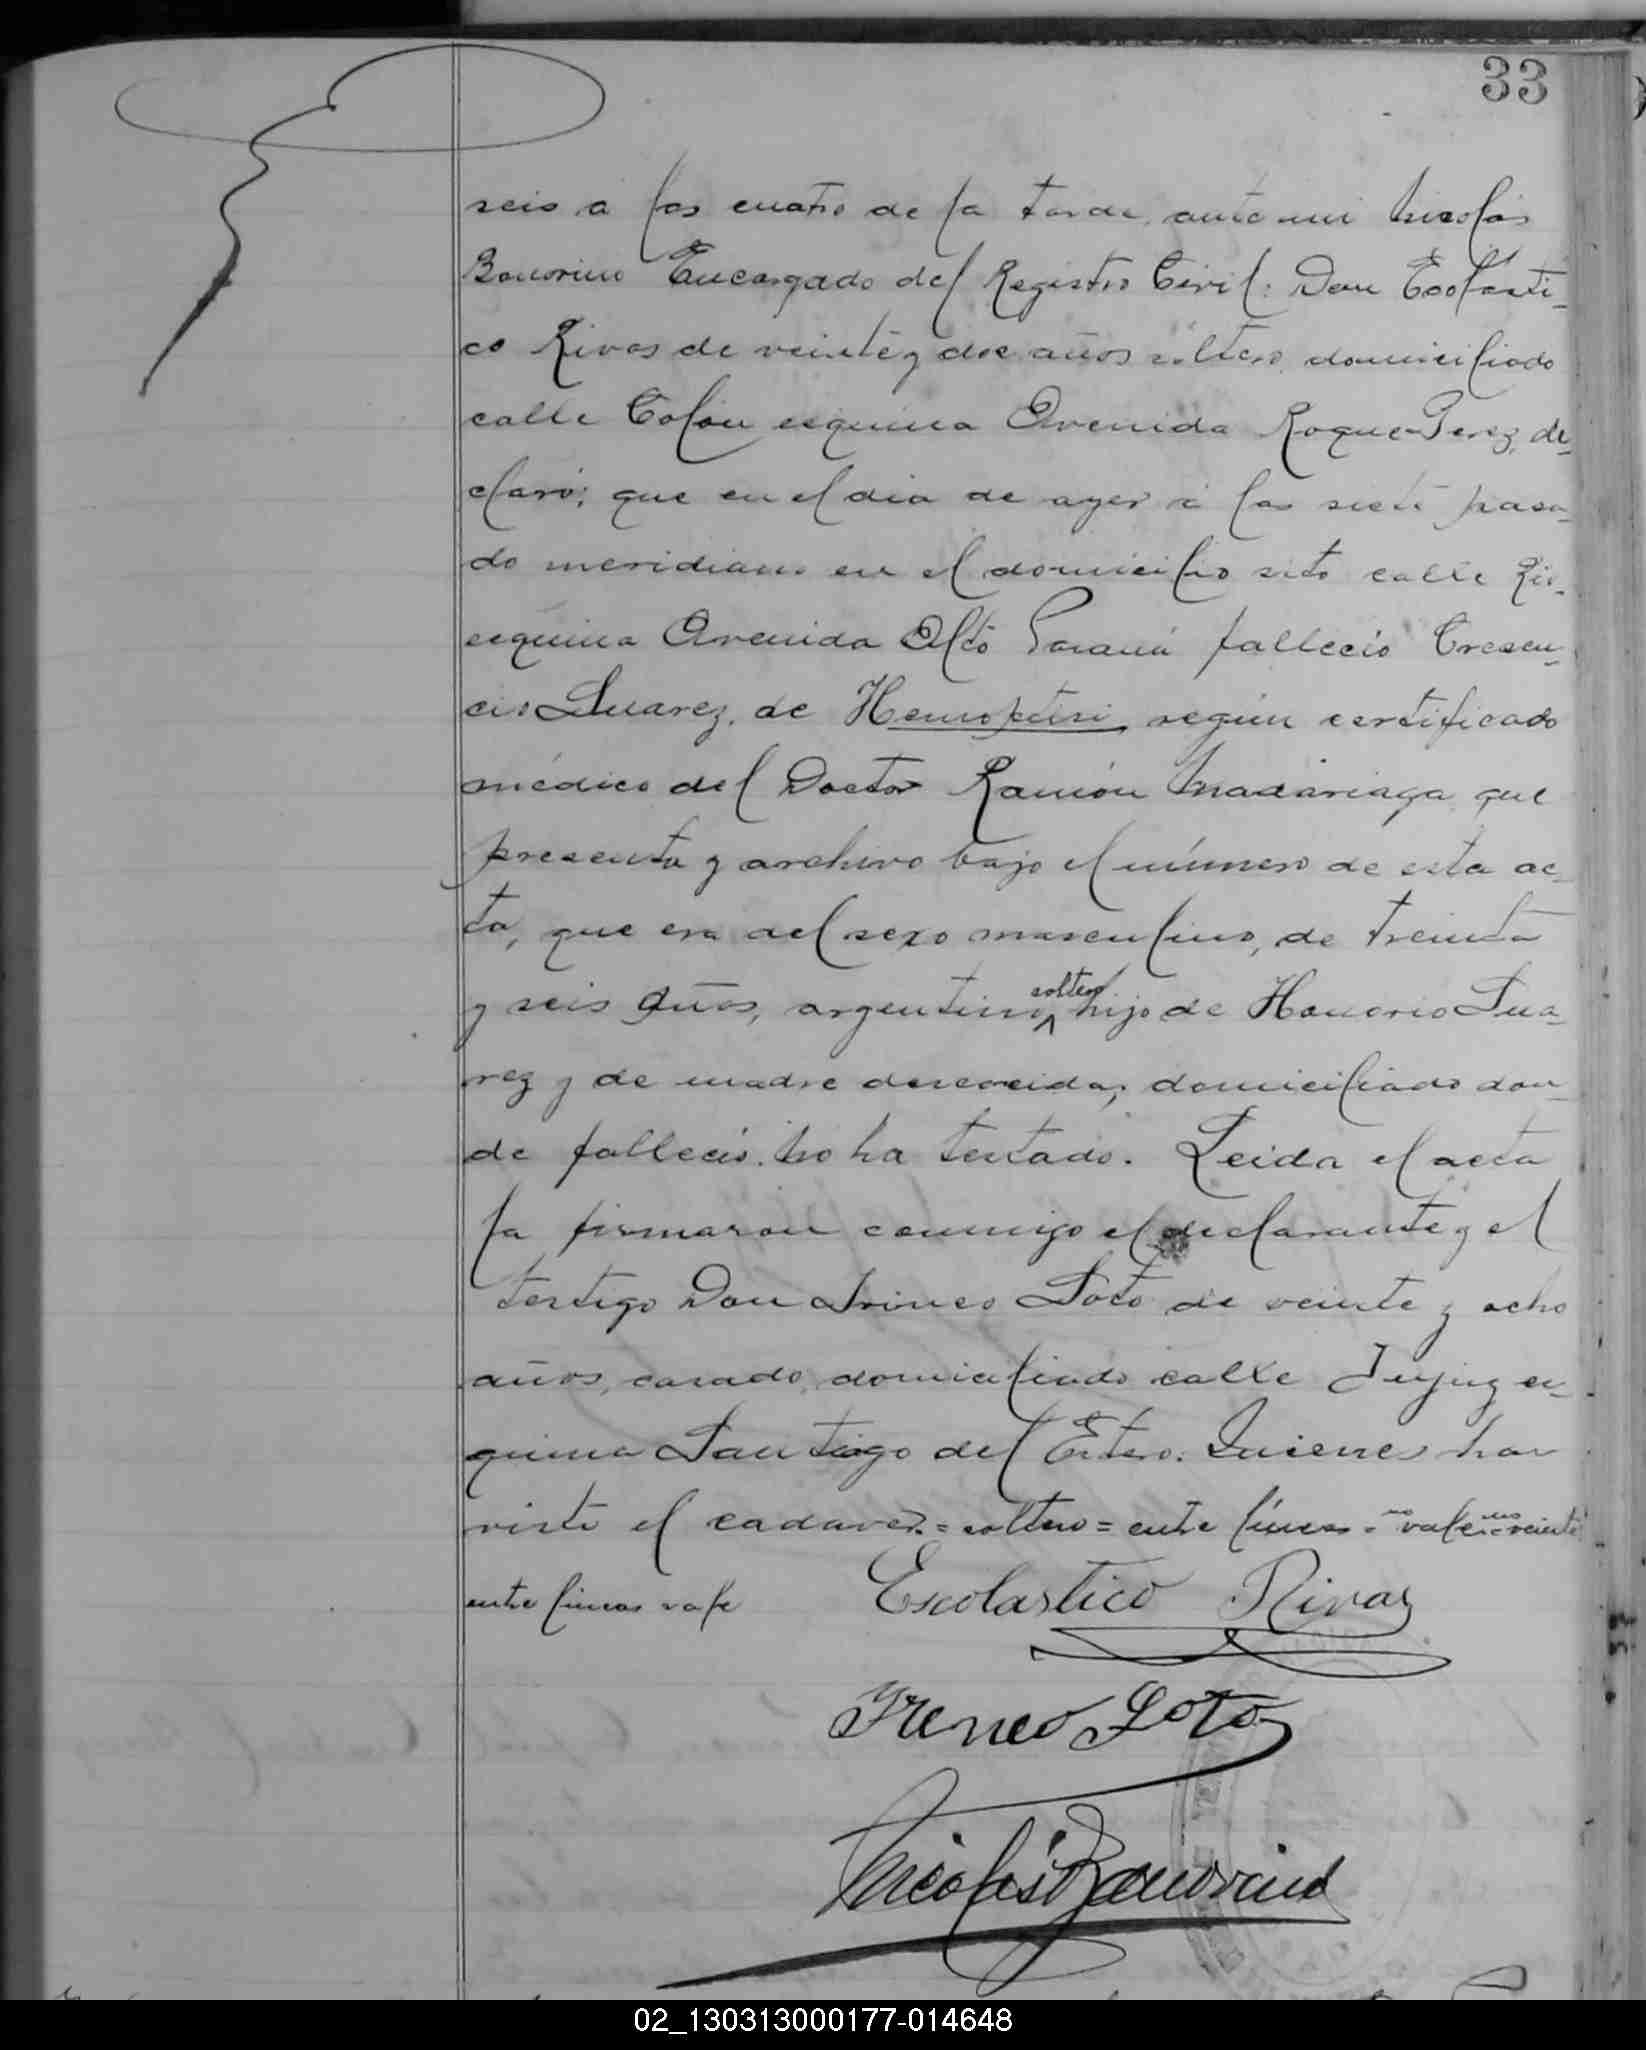 33
seis á las cuatro de la tarde, ante mi Nicolás
Bonorino Encargado del Registro Civil: Don Escolásti-
co Rivas de veinte y dos años soltero, domiciliado
calle Colón esquina Avenida Roque Perez, de-
claró: que en el dia de ayer á las siete pasa-
do meridiano en el domicilio sito calle
esquina Avenida Alto Paraná falleció Cresen-
cio Suarez, de Hemoptisi, según certificado
médico del Doctor Ramón Madariaga que
presenta y archivo bajo el número de esta ac-
ta, que era del sexo masculino, de treinta
y seis años, argentino, soltero hijo de Honorio Sua-
rez y de madre desconocida, domiciliado don-
de falleció. No ha testado. Leida el acta
la firmaron conmigo el declarante y el
testigo Don Irineo Soto de veinte y ocho
años, casado, domiciliado calle Jujuy es-
quina Santiago del Estero. Quienes han
visto el cadaver. = soltero = entre líneas = vale
entre lineas vale Escolastico Rivas
Ireneo Soto
Nicolás Bonorino
02_130313000177-014648